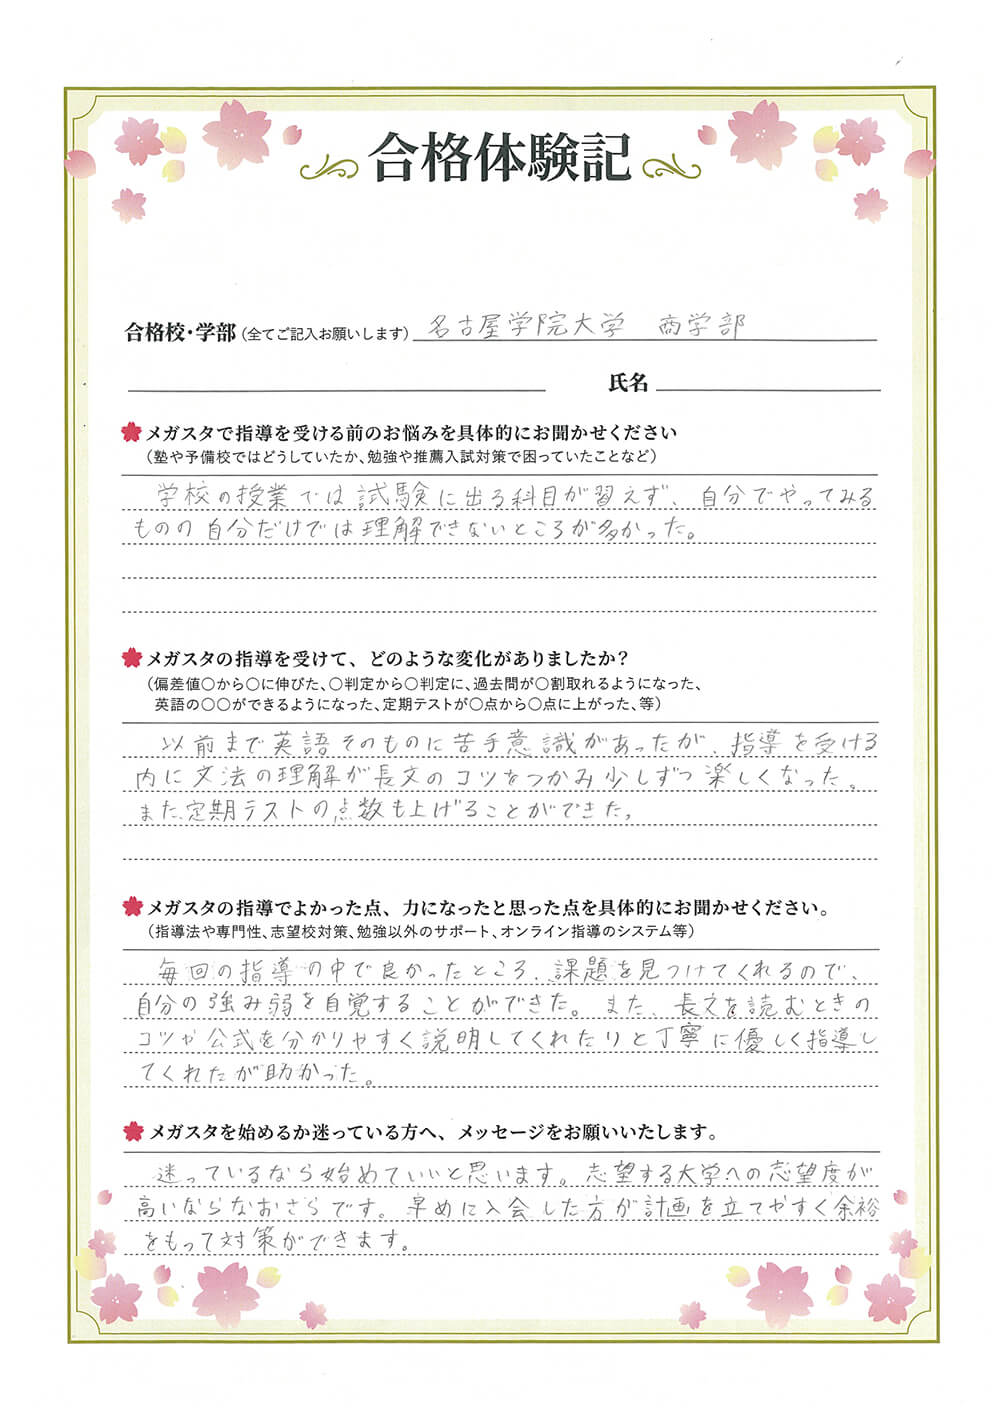 合格体験記
合格校・学部(全てご記入お願いします) 名古屋学院大学 商学部
氏名
メガスタで指導を受ける前のお悩みを具体的にお聞かせください
(塾や予備校ではどうしていたか、勉強や推薦入試対策で困っていたことなど)
学校の授業では試験に出る科目が習えず、自分でやってみる
ものの自分だけでは理解できないところが多かった。
メガスタの指導を受けて、どのような変化がありましたか?
(偏差値○から○に伸びた、○判定から○判定に、過去問が○割取れるようになった、
英語の○○ができるようになった、定期テストが○点から○点に上がった、等)
以前まで英語そのものに苦手意識があったが、指導を受ける
内に文法の理解が長文のコツをつかみ少しずつ楽しくなった。
また定期テストの点数も上げることができた。
メガスタの指導でよかった点、力になったと思った点を具体的にお聞かせください。
(指導法や専門性、志望校対策、勉強以外のサポート、オンライン指導のシステム等)
毎回の指導の中で良かったところ、課題を見つけてくれるので、
自分の強み弱を自覚することができた。また、長文を読むときの
コツや公式を分かりやすく説明してくれたりと丁寧に優しく指導し
てくれたが助かった。
メガスタを始めるか迷っている方へ、メッセージをお願いいたします。
迷っているなら始めていいと思います。志望する大学への志望度が
高いならなおさらです。早めに入会した方が計画を立てやすく余裕
をもって対策ができます。